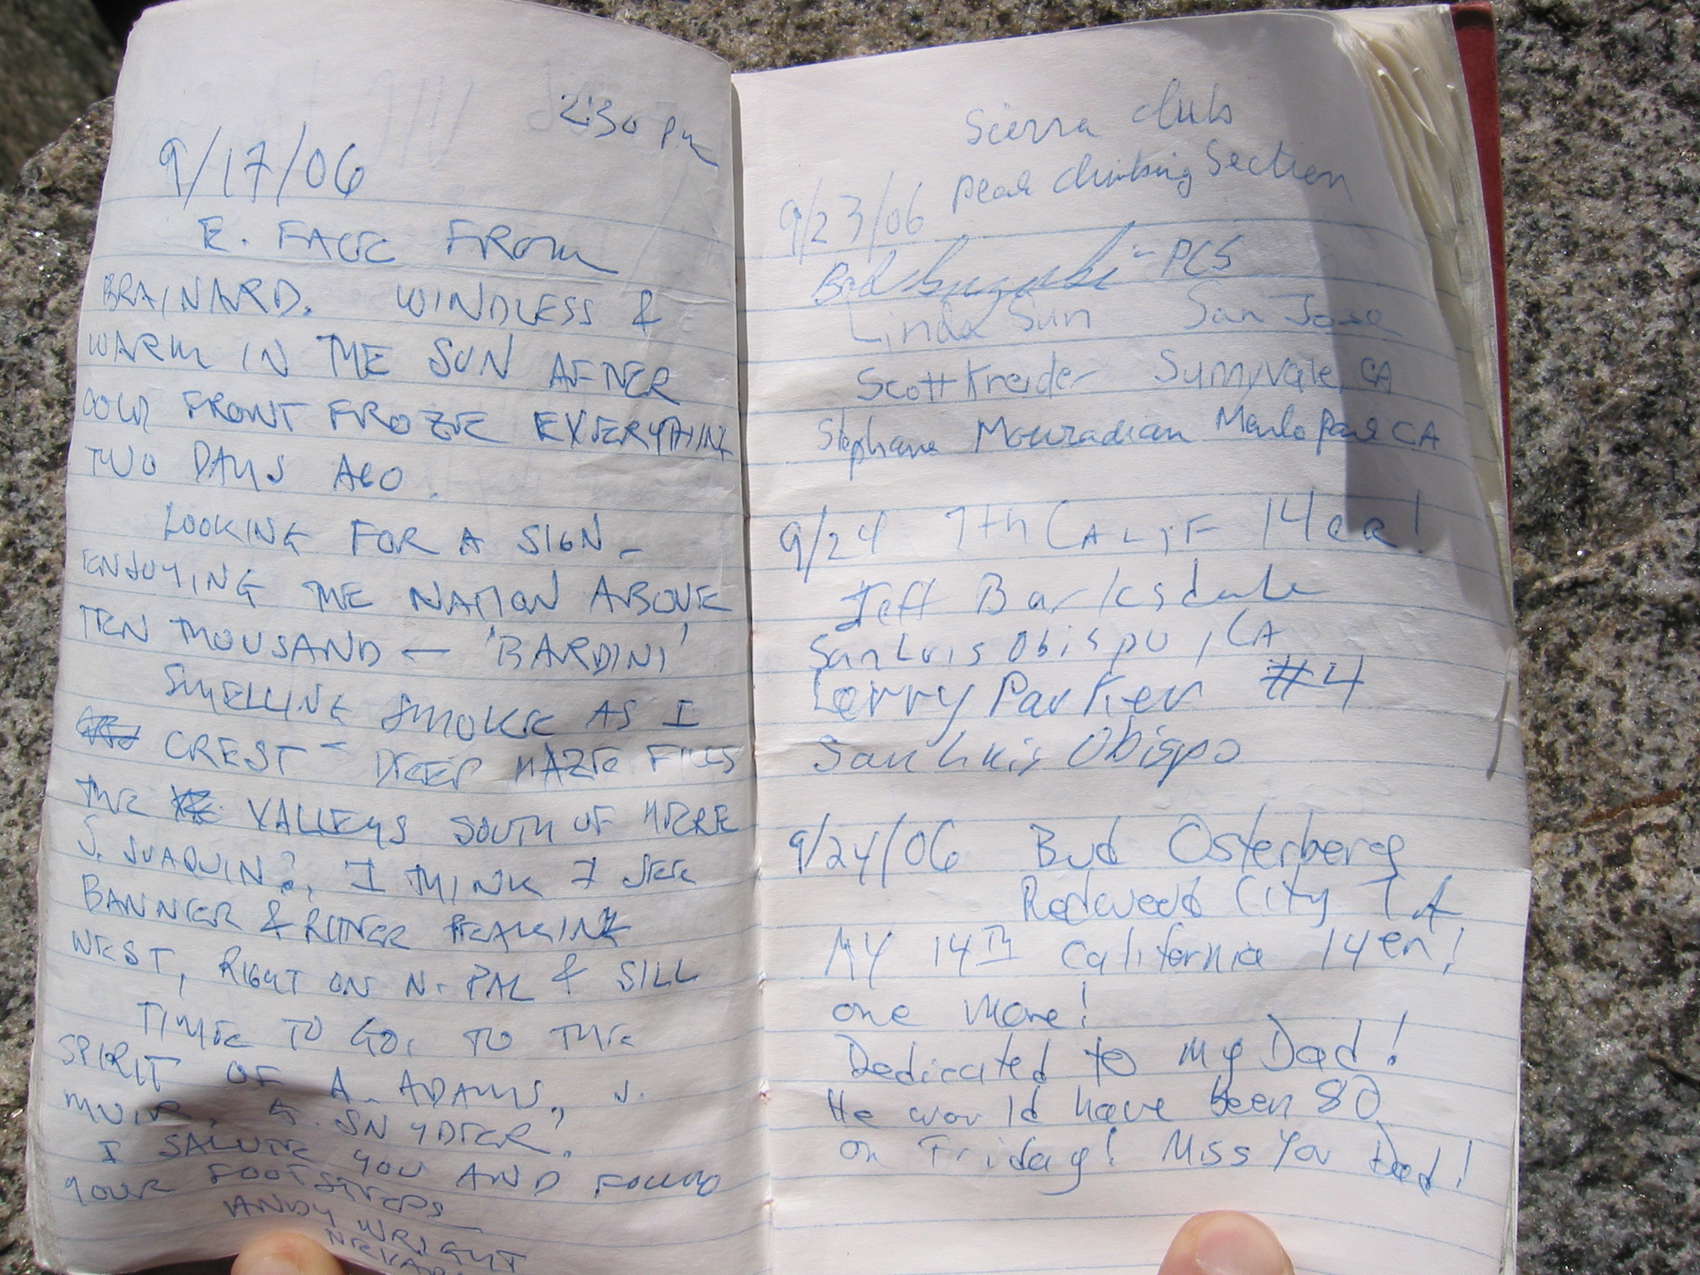 2:30 pm
9/17/06
E. FACE FROM
BRAINARD. WINDLESS &
WARM IN THE SUN AFTER
COLD FRONT FROZE EVERYTHING
TWO DAYS AGO.
LOOKING FOR A SIGN -
ENJOYING THE NATION ABOVE
TEN THOUSAND — 'BARDINI'
SMELLING SMOKE AS I
CREST - DEEP HAZE FILLS
THE VALLEYS SOUTH OF HERE
S. JOAQUIN?, I THINK I SEE
BANNER & RITTER PEAKING
WEST, RIGHT ON N. PAL & SILL
TIME TO GO, TO THE
SPIRIT OF A. ADAMS, J.
MUIR, G. SNYDER,
I SALUTE YOU AND FOLLOW
YOUR FOOTSTEPS
ANDY WRIGHT
Sierra Club
9/23/06 Peak Climbing Section
Bob Suzuki - PCS
Linda Sun San Jose
Scott Kreider Sunnyvale, CA
Stephane Mouradian Menlo Park CA
9/24 7th CALIF 14er!
Jeff Barksdale
San Luis Obispo, CA
Lerry Parker #4
San Luis Obispo
9/24/06 Bud Osterberg
Redwood City CA
MY 14TH California 14er!
one more!
Dedicated to my Dad!
He would have been 80
on Friday! Miss You Dad!